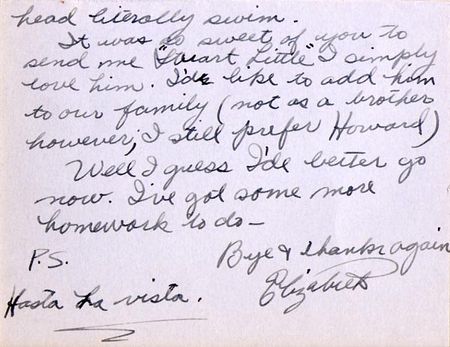 head literally swim.
It was so sweet of you to
send me "Stuart Little" I simply
love him. I'de like to add him
to our family (not as a brother
however, I still prefer Howard)
Well I guess I'de better go
now. I've got some more
homework to do—
Bye & thanks again
Elizabeth
P.S.
Hasta la vista.